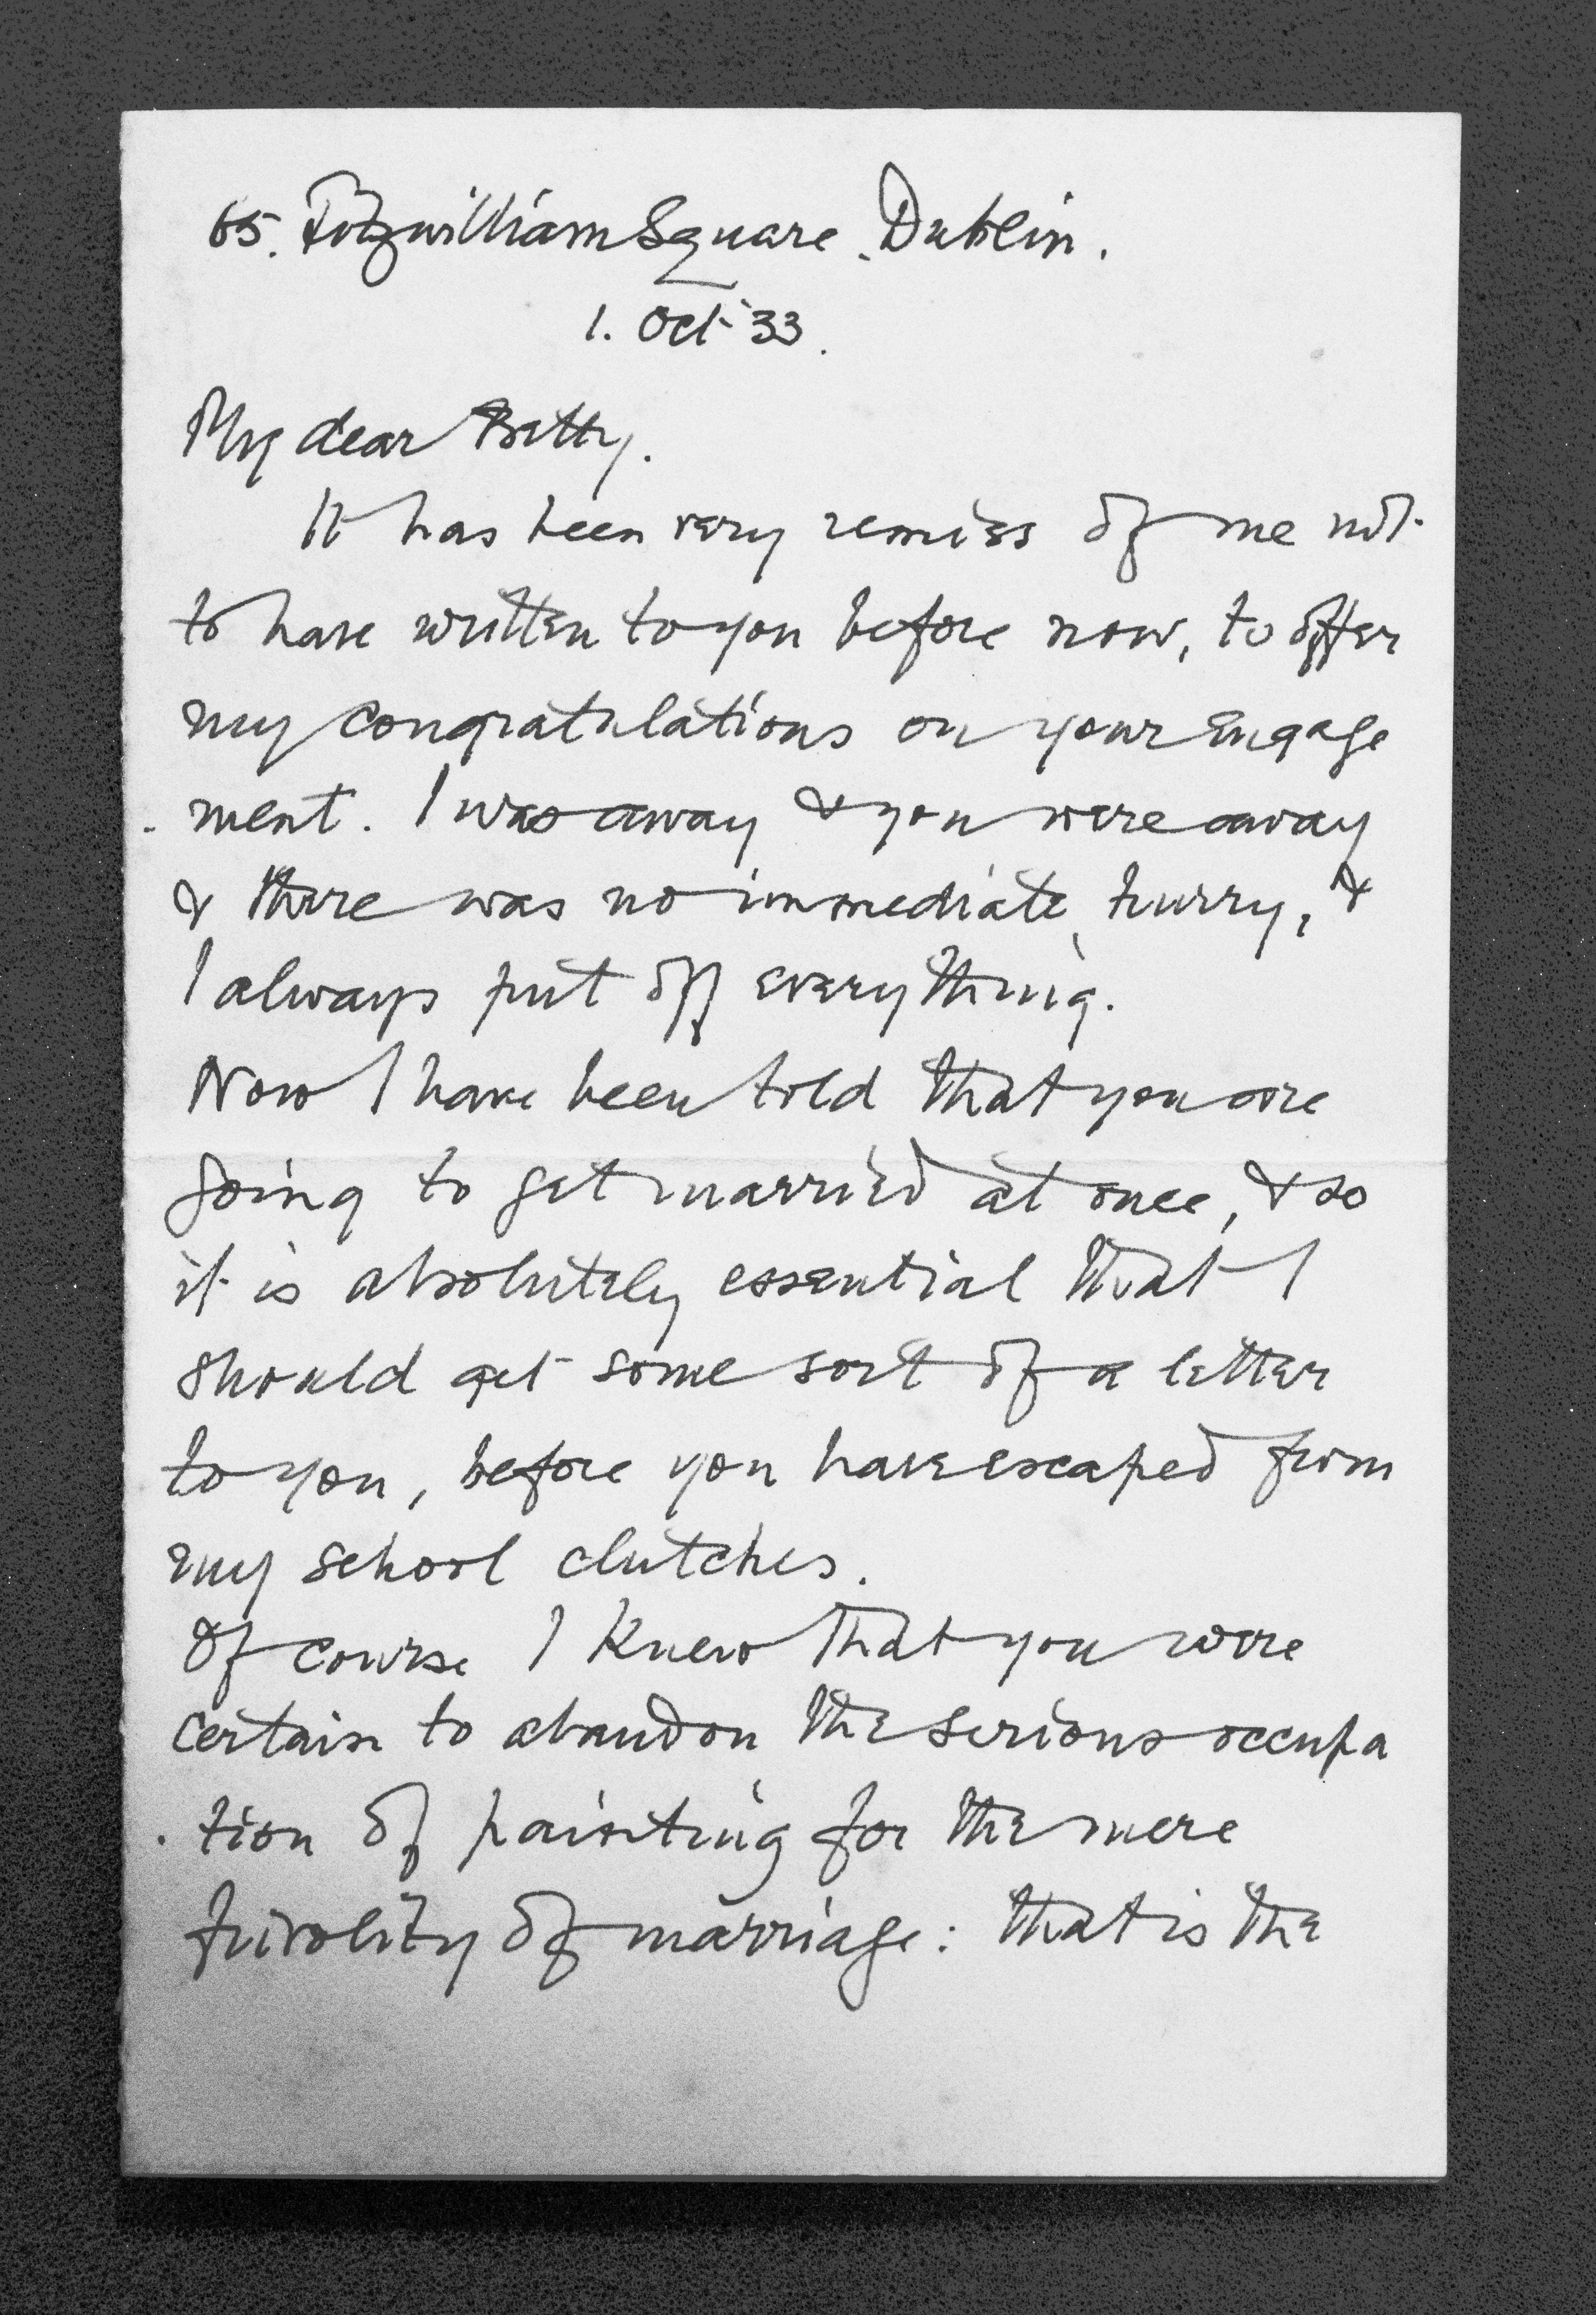 65. Fitzwilliam Square. Dublin.
1. Oct 33.
My dear Betty.
It has been very remiss of me not
to have written to you before now, to offer
my congratulations on your engage
- ment. I was away & you were away
& there was no immediate hurry, &
I always put off everything.
Now I have been told that you are
going to get married at once, & so
it is absolutely essential that I
should get some sort of a letter
to you, before you have escaped from
my school clutches.
Of course I knew that you were
certain to abandon the serious occupa
- tion of painting for the mere
frivolity of marriage: that is the